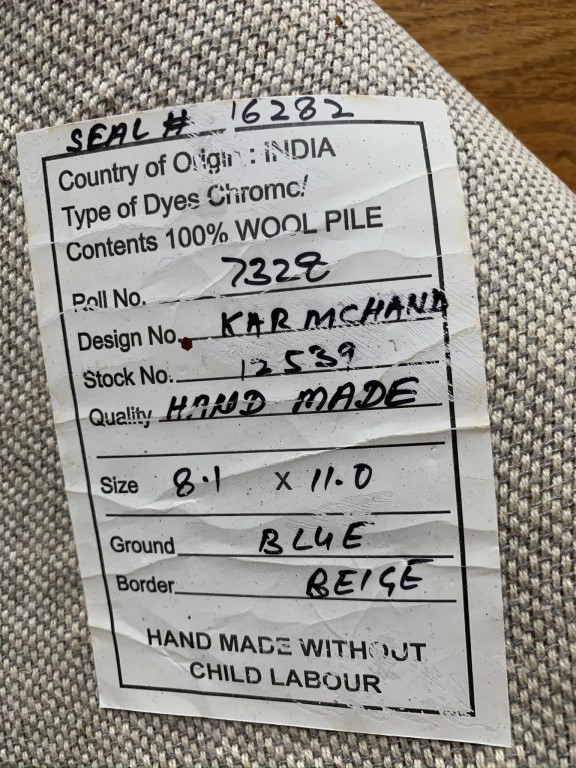 SEAL # 16282
Country of Origin : INDIA
Type of Dyes Chrome/
Contents 100% WOOL PILE
Roll No. 7328
Design No. KARMCHAND
Stock No. 12539
Quality HAND MADE
Size 8.1 X 11.0
Ground BLUE
Border BEIGE
HAND MADE WITHOUT
CHILD LABOUR